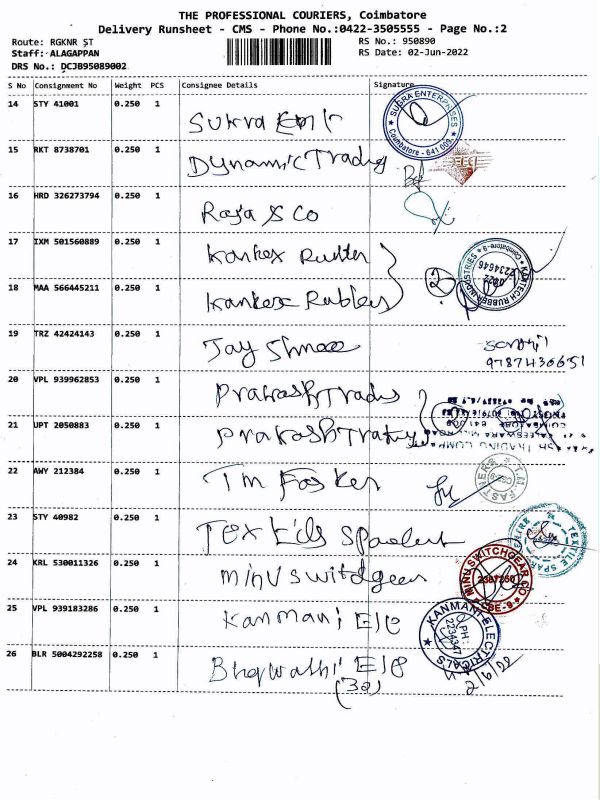 THE PROFESSIONAL COURIERS, Coimbatore
Delivery Runsheet - CMS - Phone No.:0422-3505555 - Page No.:2
Route: RGKNR ST RS No.: 950890
Staff: ALAGAPPAN RS Date: 02-Jun-2022
DRS No.: DCJB95089002
S No Consignment No Weight PCS Consignee Details Signature
14 STY 41001 0.250 1 Sukra SUKRA ENTERPRISES Coimbatore - 641 009
15 RKT 8738701 0.250 1 Dynamic Trading
16 HRD 326273794 0.250 1 Raja & Co
17 IXM 501560889 0.250 1 Kankex Rubber
18 MAA 566445211 0.250 1 Kankex Rubber 2 KANTECH RUBBER INDUSTRIES Coimbatore-9 2234646
19 TRZ 42424143 0.250 1 Jay Shree 9787430651
20 VPL 939962853 0.250 1 Prakash Trades
21 UPT 2050883 0.250 1 Prakash 2
22 AWY 212384 0.250 1 Tm FASTNERS T.M.
23 STY 40982 0.250 1 Tex TEXTILE SPAR
24 KRL 530011326 0.250 1 Minu Switchgear MINU SWITCHGEAR CO CBE-9
25 VPL 939183286 0.250 1 Kanmani E/C KANMANI ELECTRICALS PH: 2234347
26 BLR 5004292258 0.250 1 E/C 2/6/22
(30)